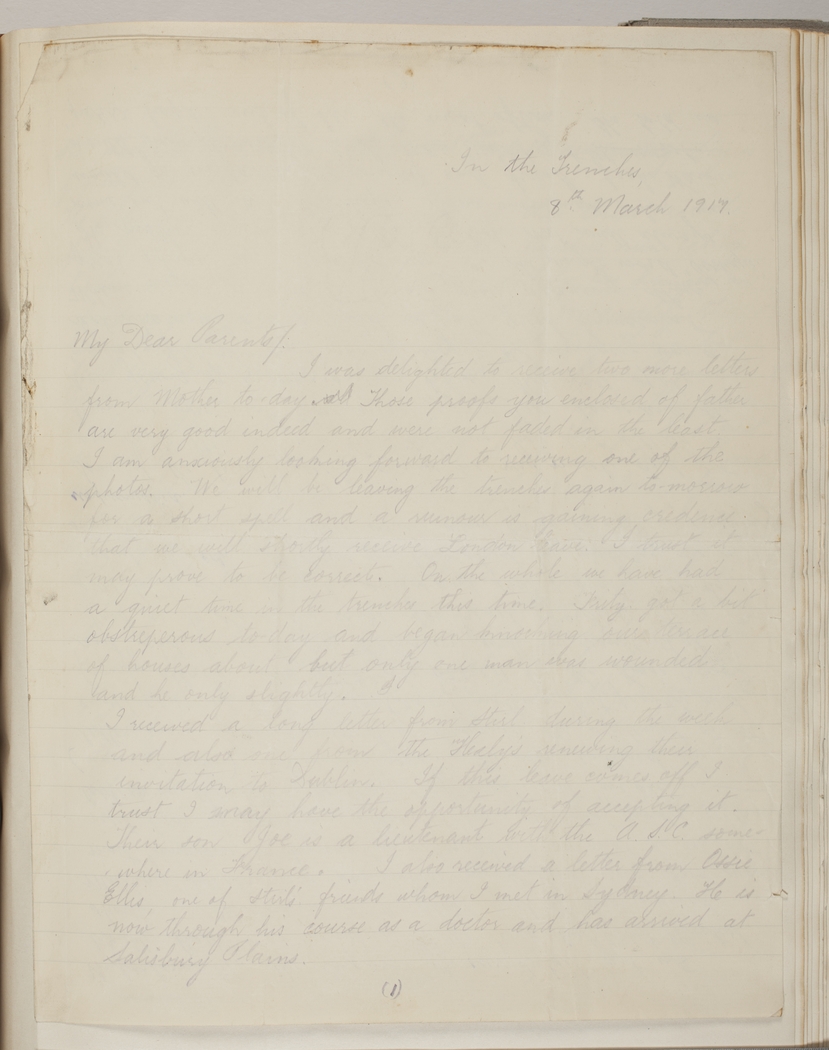 In the Trenches,
8th March 1917.
My Dear Parents/:
I was delighted to receive two more letters
from Mother to-day and Those proofs you enclosed of father
are very good indeed and were not faded in the least.
I am anxiously looking forward to receiving one of the
photos. We will be leaving the trenches again to-morrow
for a short spell and a rumour is gaining credence
that we will shortly receive London leave. I trust it
may prove to be correct. On the whole we have had
a quiet time in the trenches this time. Fritz got a bit
obstreperous to-day and began knocking our terrace
of houses about but only one man was wounded
and he only slightly.
I received a long letter from Stirl during the week
and also one from the Healys renewing their
invitation to Dublin. If this leave comes off I
trust I may have the opportunity of accepting it.
Their son Joe is a lieutenant with the A.S.C. some-
where in France. I also received a letter from Ossie
Ellis one of Stirl's friends whom I met in Sydney. He is
now through his course as a doctor and has arrived at
Salisbury Plains.
(1)